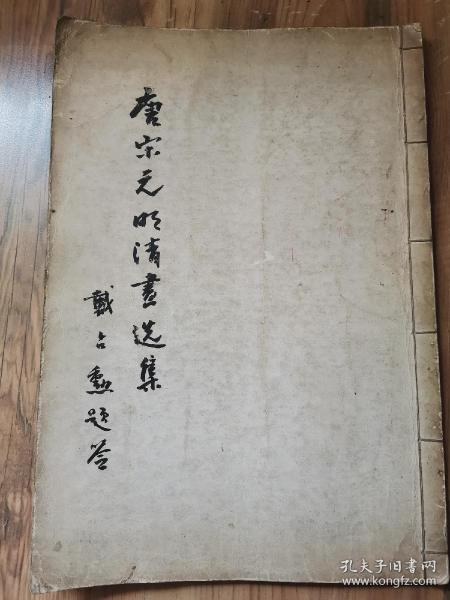 唐宋元明清畫选集
戴占勳题签
孔夫子旧书网
www.kongfz.com